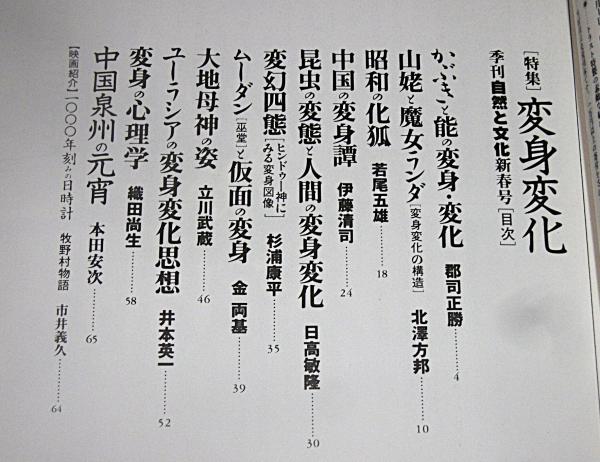 ［特集］変身変化
季刊自然と文化新春号［目次］
かぶきと能の変身・変化 郡司正勝………4
山姥と魔女ランダ［変身変化の構造］ 北澤方邦………10
昭和の化狐 若尾五雄………18
中国の変身譚 伊藤清司………24
昆虫の変態と人間の変身変化 日高敏隆………30
変幻四態［ヒンドゥー神にみる変身図像］ 杉浦康平………35
ムーダン［巫堂］と仮面の変身 金両基………39
大地母神の姿 立川武蔵………46
ユーラシアの変身変化思想 井本英一………52
変身の心理学 織田尚生………58
中国泉州の元宵 本田安次………65
［映画紹介］一〇〇〇年刻みの日時計 牧野村物語 市井義久………64